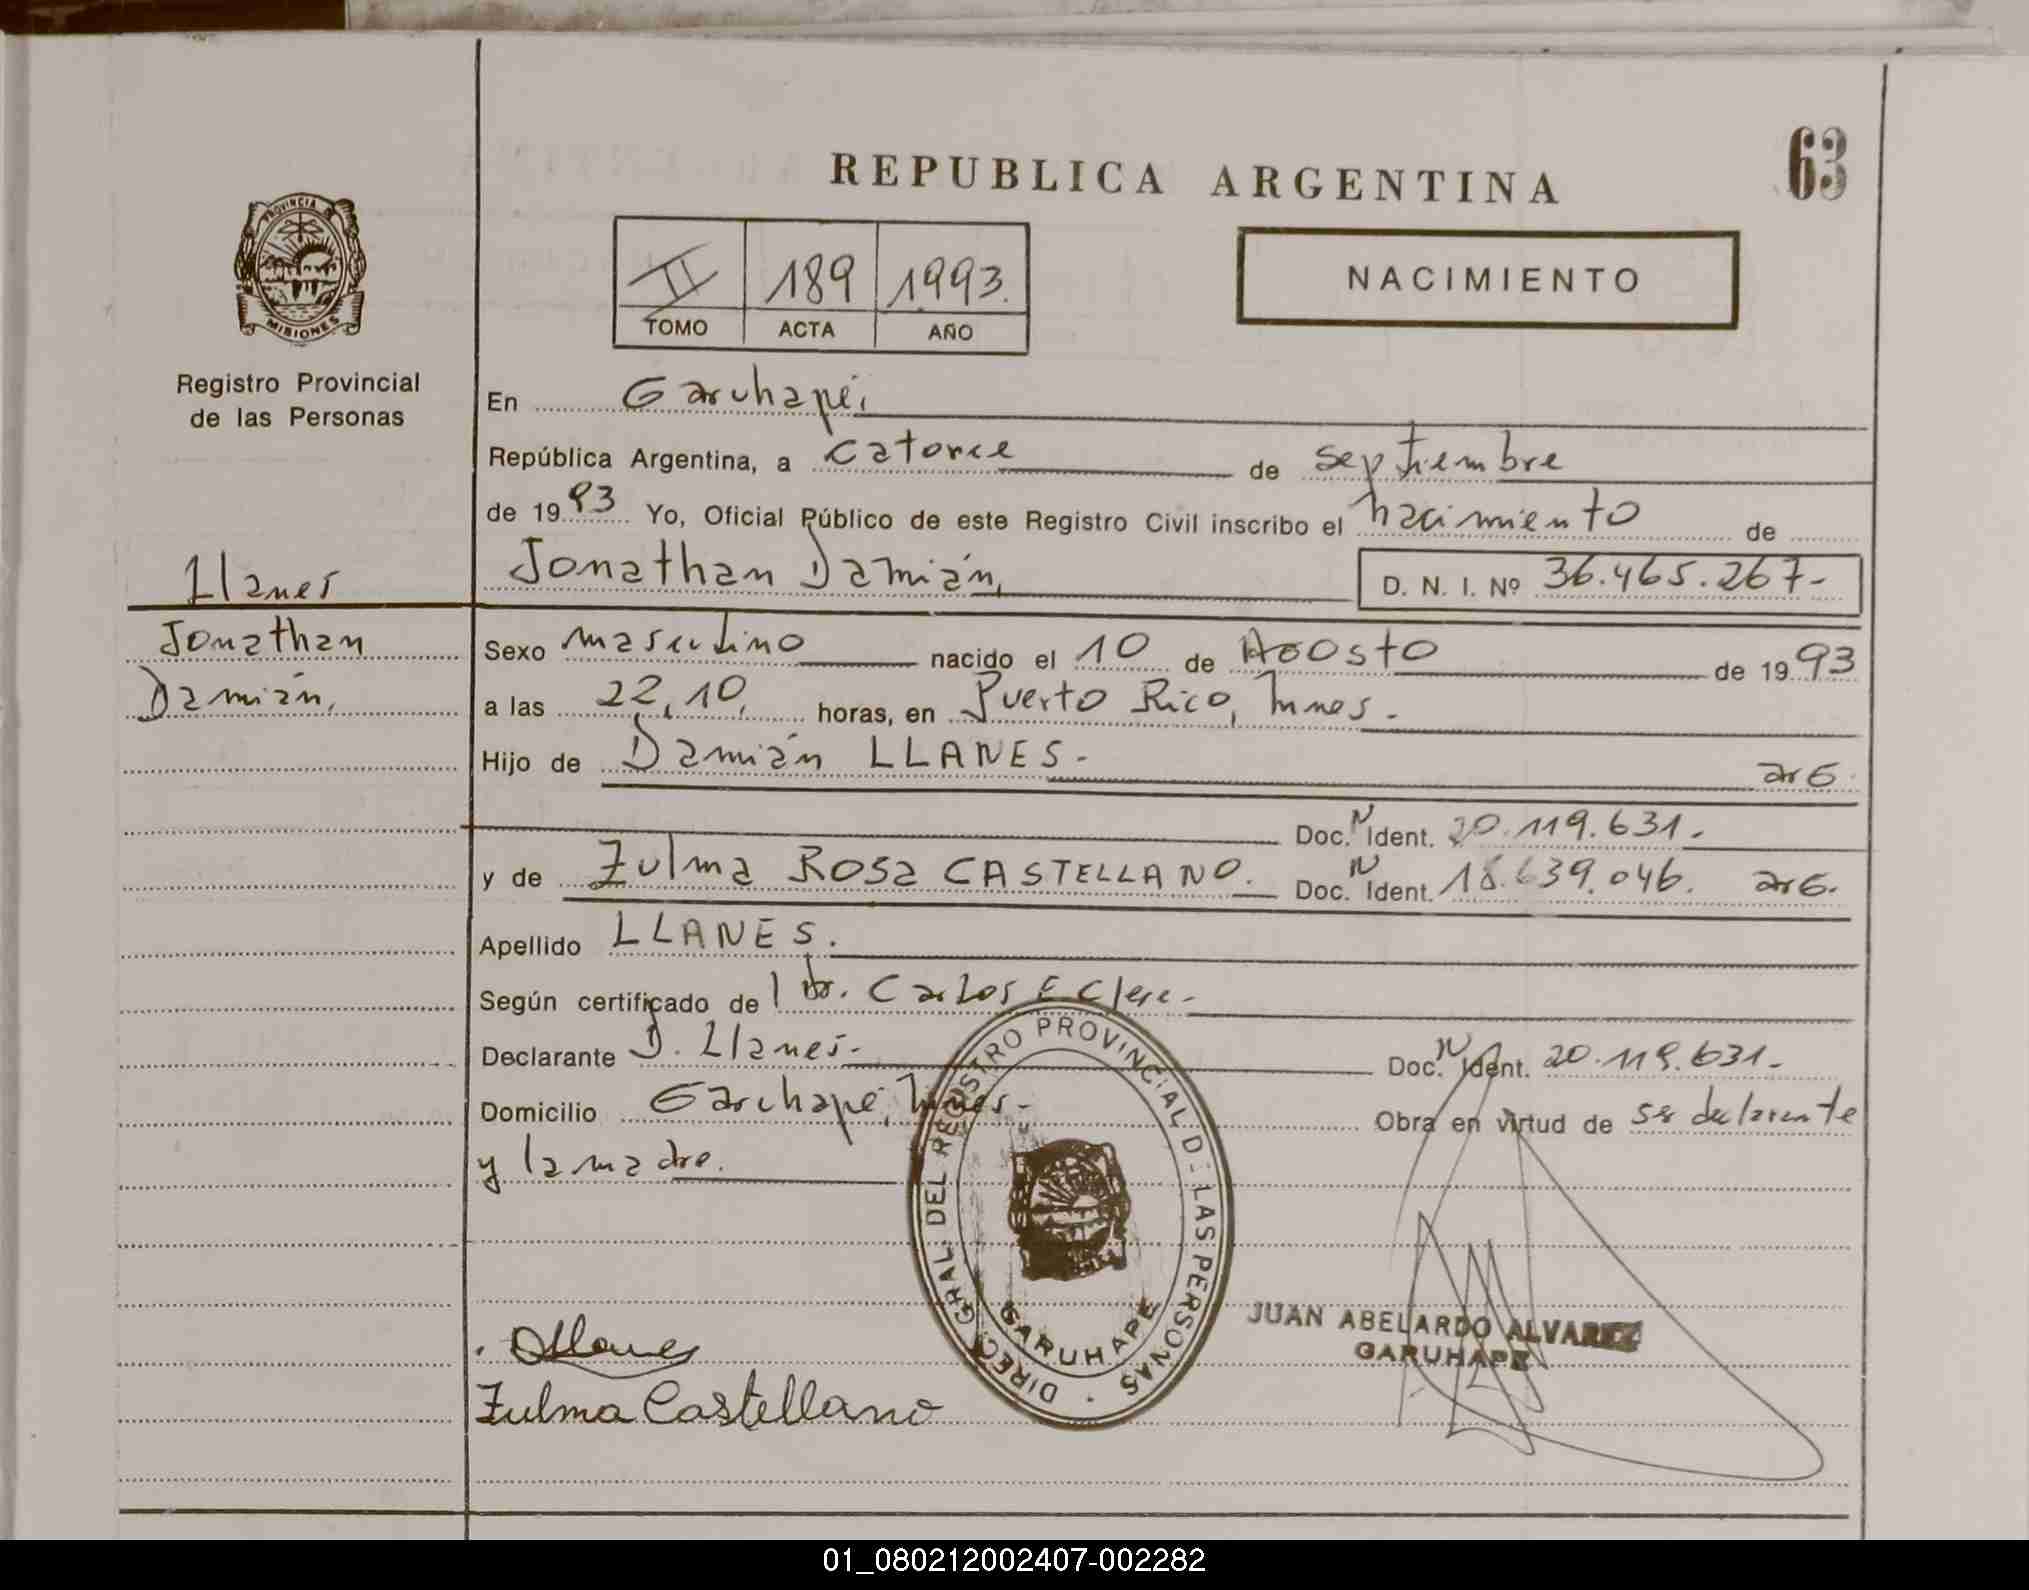 63
REPUBLICA ARGENTINA
PROVINCIA DE
MISIONES
II 189 1993.
TOMO ACTA AÑO
NACIMIENTO
Registro Provincial
de las Personas
En Garuhapé,
República Argentina, a catorce de septiembre
de 1993 Yo, Oficial Público de este Registro Civil inscribo el nacimiento de
Llanes
Jonathan Damián, D. N. I. Nº 36.465.267-
Jonathan
Sexo masculino nacido el 10 de Agosto de 1993
Damián,
a las 22,10, horas, en Puerto Rico, Mnes.
Hijo de Damián LLANES.- arg.
Doc. N Ident. 20.119.631.
y de Zulma Rosa CASTELLANO. Doc. N Ident. 18.639.046. arg.
Apellido LLANES.
Según certificado de Dr. Carlos E
Declarante D. Llanes.- Doc. N Ident. 20.119.631-
Domicilio Garuhapé, Mnes.- Obra en virtud de ser declarante
y la madre.
DIREC. GRAL. DEL REGISTRO PROVINCIAL DE LAS PERSONAS
GARUHAPE
JUAN ABELARDO ALVAREZ
GARUHAPE
DLlanes
Zulma Castellano
01_080212002407-002282